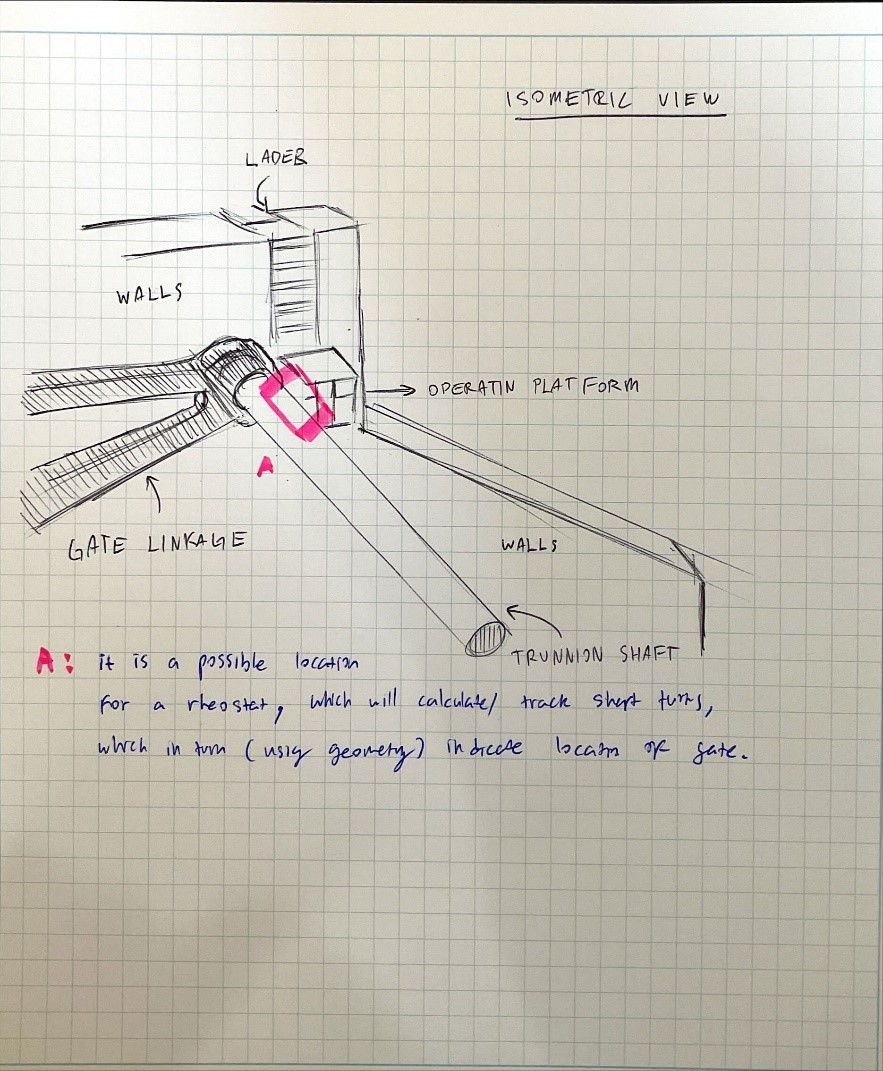 ISOMETRIC VIEW
LADER
WALLS
OPERATIN PLATFORM
A
GATE LINKAGE
WALLS
TRUNNION SHAFT
A: it is a possible location
for a rheostat, which will calculate/ track shaft turns,
which in turn (using geometry) indicate location of gate.